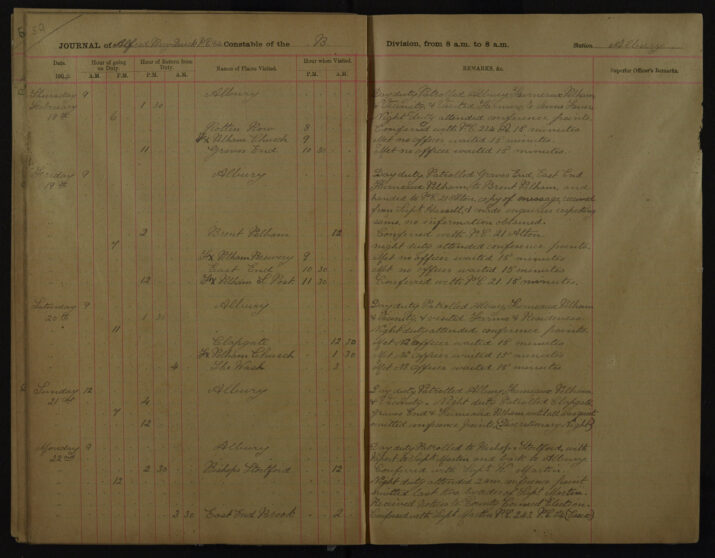 59
JOURNAL of Alfred Constable of the B Division, from 8 a.m. to 8 a.m. Station Albury
Date. Hour of going on Duty. Hour of Return from Duty. Names of Places Visited. Hour when Visited. REMARKS, &c. Superior Officer's Remarks.
A.M. P.M. P.M. A.M. P.M. A.M.
Thursday 9 Albury Day duty Patrolled Albury, Furneux Pelham
February 1 30 & Vicinity, & visited Farmers
18th 6 Night duty attended conference points
Rotten Row 8 Conferred with P.C. 15 minutes
Fx Pelham Church 9 Met no officer waited 15 minutes
11 Graves End 10 30 Met no officer waited 15 minutes.
Friday 9 Albury Day duty Patrolled Graves End, East End
19th Furneaux Pelham to Brent Pelham, and
handed to P.C. 21 Alton, copy of message received
from Supt. & made enquiries respecting
same, no information obtained.
2 Brent Pelham 12 Conferred with P.C. 21 Alton
7 night duty attended conference points.
Fx Pelham Brewery 9 Met no officer waited 15 minutes
East End 10 30 Met no officer waited 15 minutes
12 Fx Pelham S. Post 11 30 Conferred with P.C. 21 15 minutes.
Saturday 9 Albury Day duty Patrolled Albury, Furneaux Pelham
20th 1 30 & Vicinity, & visited Farms & Residences.
11 Night duty attended conference points
Clapgate 12 30 Met no officer waited 15 minutes
Fx Pelham Church 1 30 Met no officer waited 15 minutes
4 The Wash 3 Met no officer waited 15 minutes
Sunday 12 Albury Day duty Patrolled Albury, Furneaux Pelham
21st 4 & Vicinity. Night duty Patrolled Clapgate,
7 Graves End & Furneaux Pelham
12 omitted conference points, (Discretionary Night)
Monday 9 Albury Day duty Patrolled to Bishops Stortford, with
22nd Report to Supt. Martin and back to Albury
2 30 Bishops Stortford 12 Conferred with Supt. Martin.
12 Night duty attended 2 am conference point
omitted last two by order of Supt. Martin.
Received notes to County Council Election.
3 30 East End Brook 2 Conferred with Supt. Martin P.C. 243 P.C.